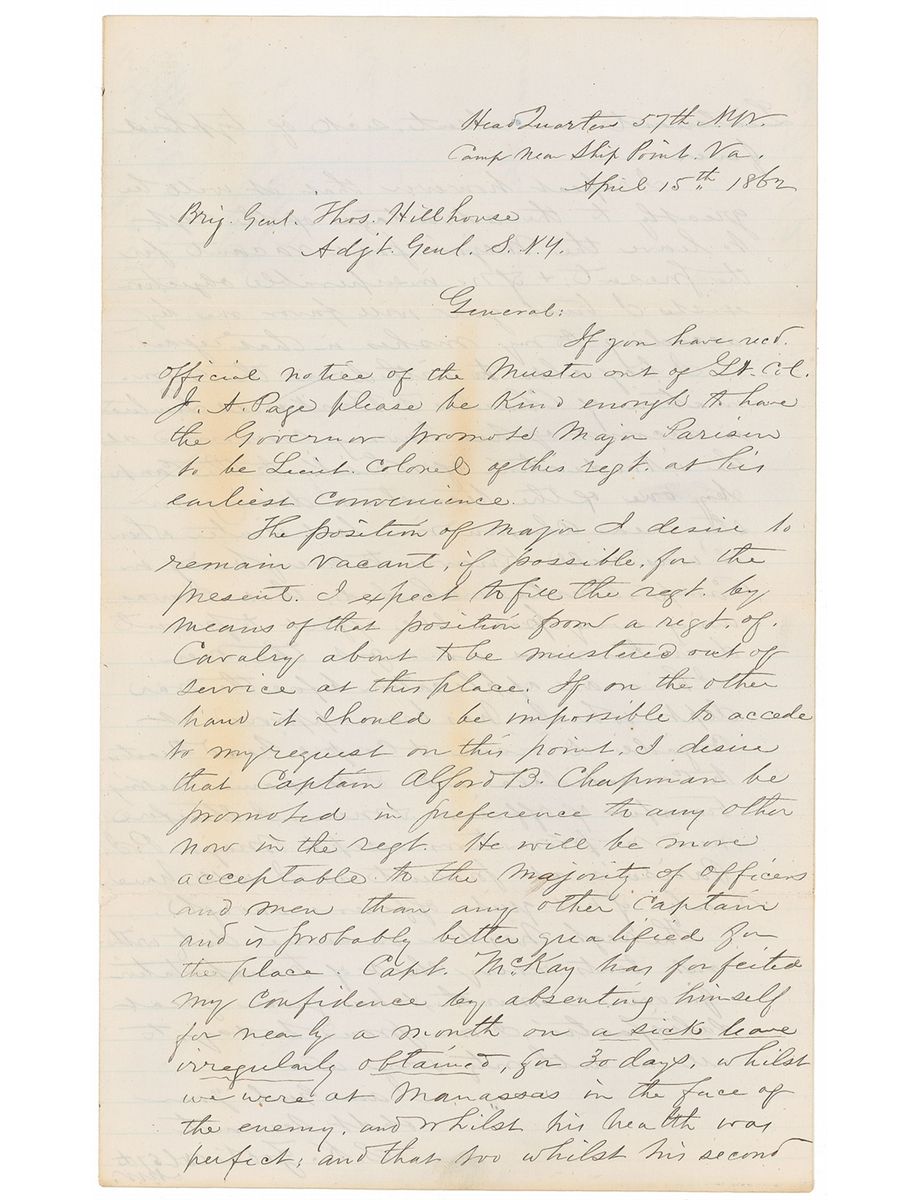 Head Quarters 57th N.Y.V.
Camp near Ship Point. Va.
April 15th 1862
Brig. Genl. Thos. Hillhouse
Adjt. Genl. S. N.Y.
General:
If you have recd.
official notice of the muster out of Lt. Col.
J. A. Page please be kind enough to have
the Governor promote Major Parisen
to be Lieut. Colonel of this regt. at his
earliest convenience.
The position of Major I desire to
remain vacant, if possible, for the
present. I expect to fill the regt. by
means of that position from a regt. of.
Cavalry about to be mustered out of
service at this place. If on the other
hand it should be impossible to accede
to my request on this point, I desire
that Captain Alford B. Chapman be
promoted in preference to any other
now in the regt. He will be more
acceptable to the majority of officers
and men than any other Captain
and is probably better qualified for
the place. Capt. McKay has forfeited
my confidence by absenting himself
for nearly a month on a sick leave
irregularly obtained, for 30 days, whilst
we were at Manassas in the face of
the enemy, and whilst his health was
perfect; and that too whilst his second